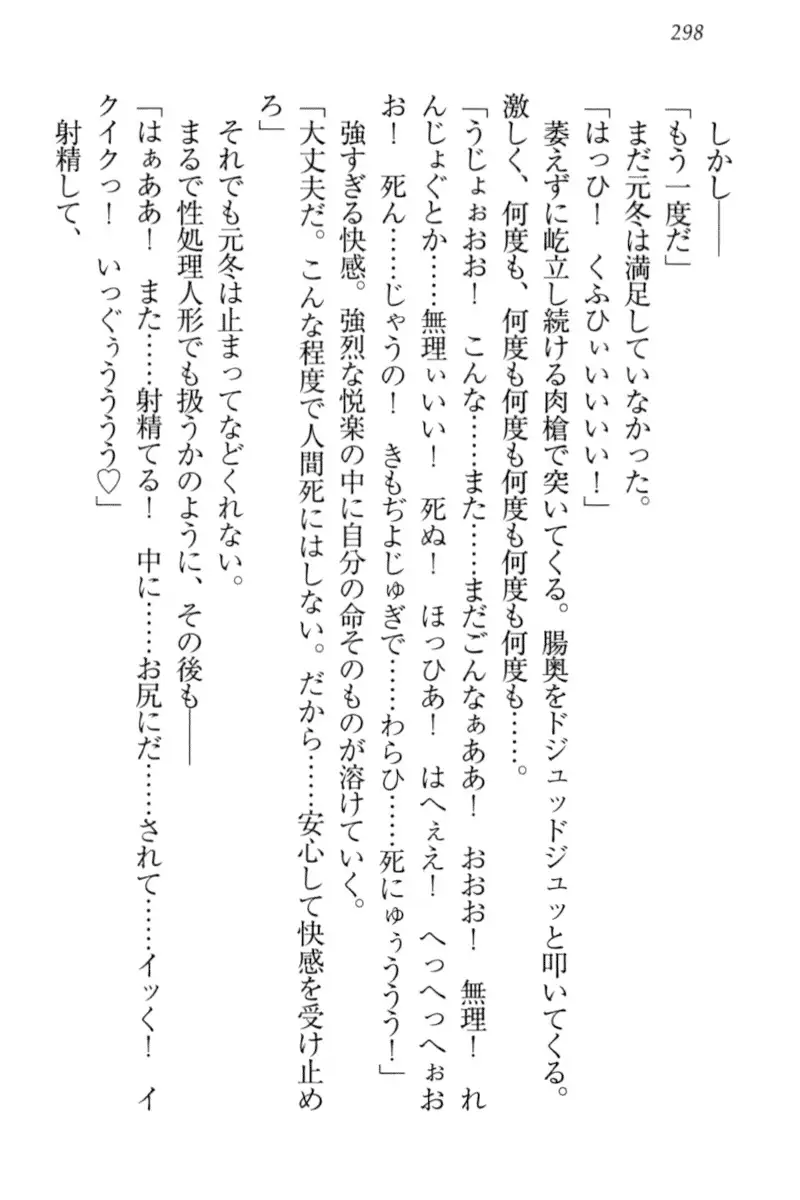 298
しかし――
「もう一度だ」
まだ元冬は満足していなかった。
「はっひ！　くふひぃいいいい！」
萎えずに屹立し続ける肉槍で突いてくる。腸奥をドジュッドジュッと叩いてくる。
激しく、何度も、何度も何度も何度も何度も……。
「うじょぉおお！　こんな……また……まだごんなぁああ！　おおお！　無理！　れ
んじょぐとか……無理ぃいい！　死ぬ！　ほっひあ！　はへぇえ！　へっへっへぉお
お！　死ん……じゃうの！　きもぢよじゅぎで……わらひ……死にゅぅううう！」
強すぎる快感。強烈な悦楽の中に自分の命そのものが溶けていく。
「大丈夫だ。こんな程度で人間死にはしない。だから……安心して快感を受け止め
ろ」
それでも元冬は止まってなどくれない。
まるで性処理人形でも扱うかのように、その後も――
「はぁああ！　また……射精てる！　中に……お尻にだ……されて……イッく！　イ
クイクっ！　いっぐぅうううう♡」
射精して、